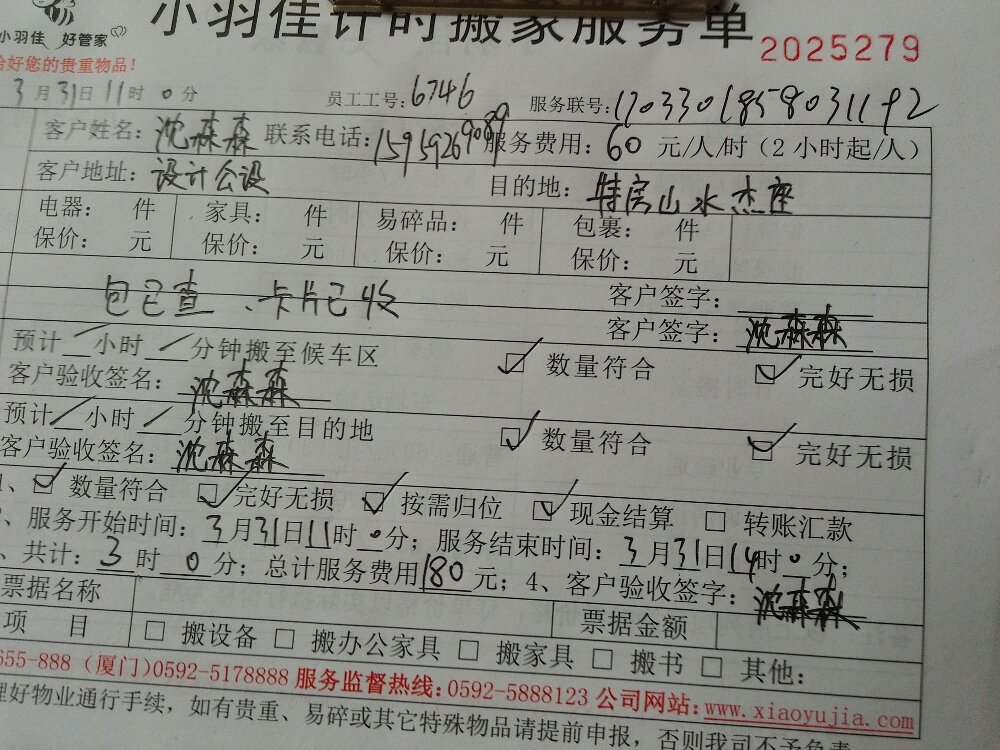 小羽佳计时搬家服务单
小羽佳 好管家
2025279
给好您的贵重物品!
3月31日11时0分 员工工号:6746 服务联号:1703301858031192
客户姓名:沈森森 联系电话:15959269089 服务费用:60元/人/时(2小时起/人)
客户地址:设计公设 目的地:特房山水杰座
电器: 件 家具: 件 易碎品: 件 包裹: 件
保价: 元 保价: 元 保价: 元 保价: 元
包已查、卡片已收 客户签字:
客户签字:沈森森
预计/小时/分钟搬至候车区 ☑数量符合 ☑完好无损
客户验收签名:沈森森
预计/小时/分钟搬至目的地 ☑数量符合 ☑完好无损
客户验收签名:沈森森
1、☑数量符合 ☑完好无损 ☑按需归位 ☑现金结算 □转账汇款
、服务开始时间:3月31日11时0分;服务结束时间:3月31日14时0分;
、共计:3时0分;总计服务费用180元;4、客户验收签字:沈森森
票据名称 票据金额
项 目 □搬设备 □搬办公家具 □搬家具 □搬书 □其他:
555-888(厦门)0592-5178888 服务监督热线:0592-5888123 公司网站:www.xiaoyujia.com
理好物业通行手续,如有贵重、易碎或其它特殊物品请提前申报,否则我司不予负责